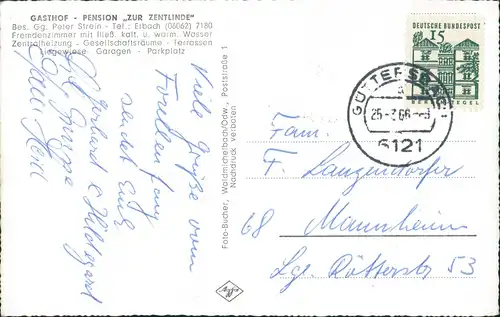 GASTHOF - PENSION „ZUR ZENTLINDE"
Bes. Gg. Peter Strein - Tel.: Erbach (06062) 7180
Fremdenzimmer mit fließ. kalt. u. warm. Wasser
Zentralheizung - Gesellschaftsräume - Terrassen
Liegewiese Garagen - Parkplatz
Viele Grüße vom
Forellenfang
sendet Euch
Gerhard & Hildegard
Foto-Bucher, Waldmichelbach/Odw., Poststraße 1
Nachdruck verboten
Agfa
DEUTSCHE BUNDESPOST
15
GÜTTERSBACH
a
25.-3.66.-8
6121
Fam.
F. Langendorfer
68 Mannheim
Lg. Rötterstr 53